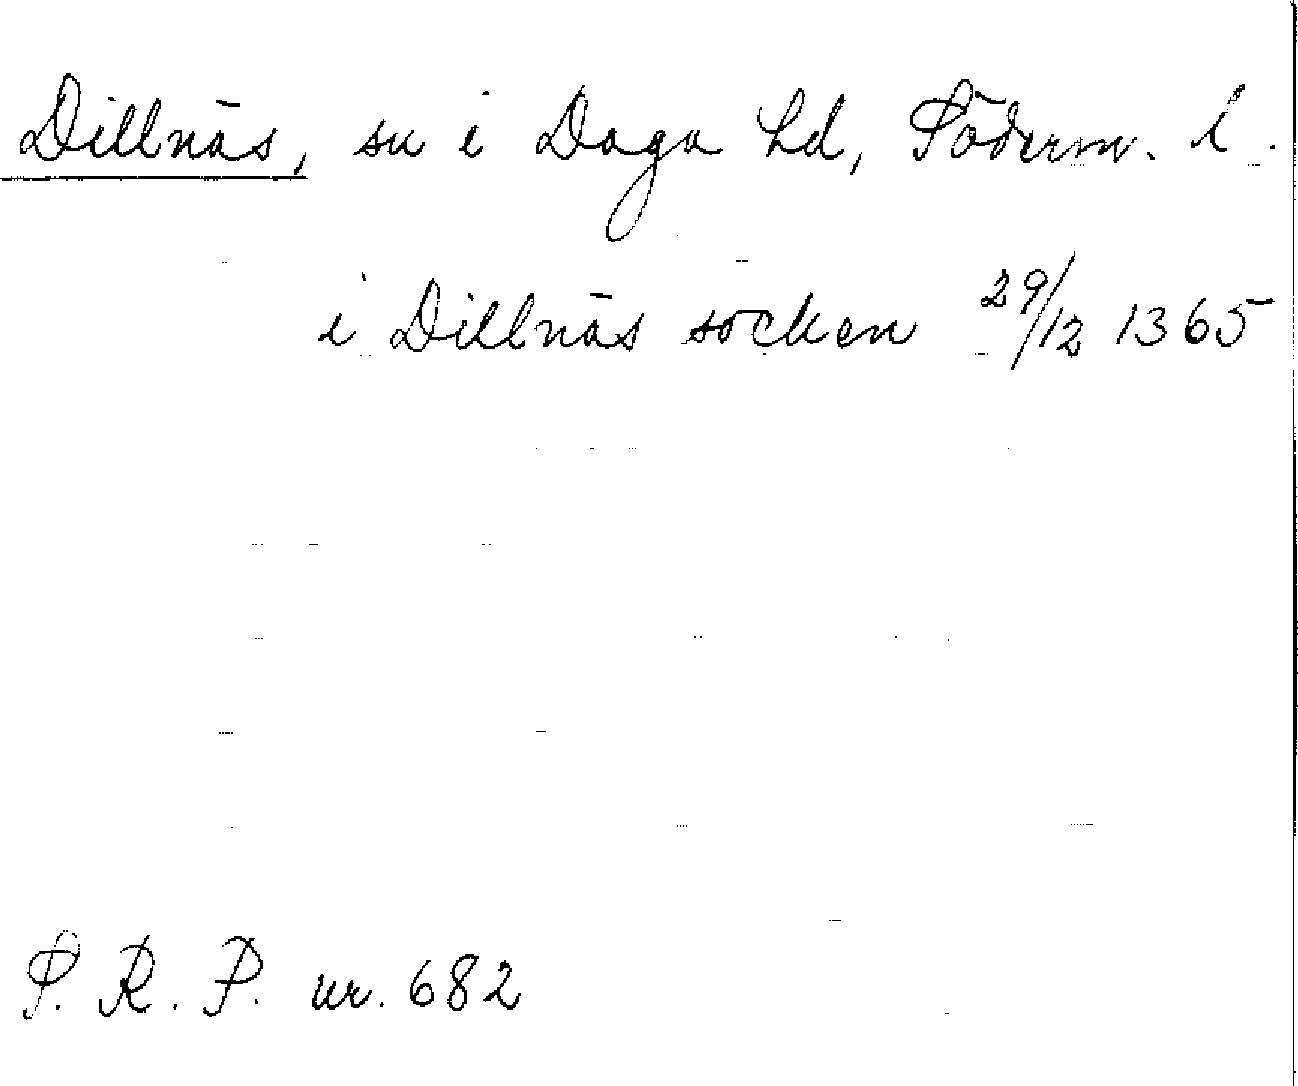 Dillnäs, sn i Daga hd, Söderm. l.
i Dillnäs socken 29/12 1365
S. R. P. nr. 682